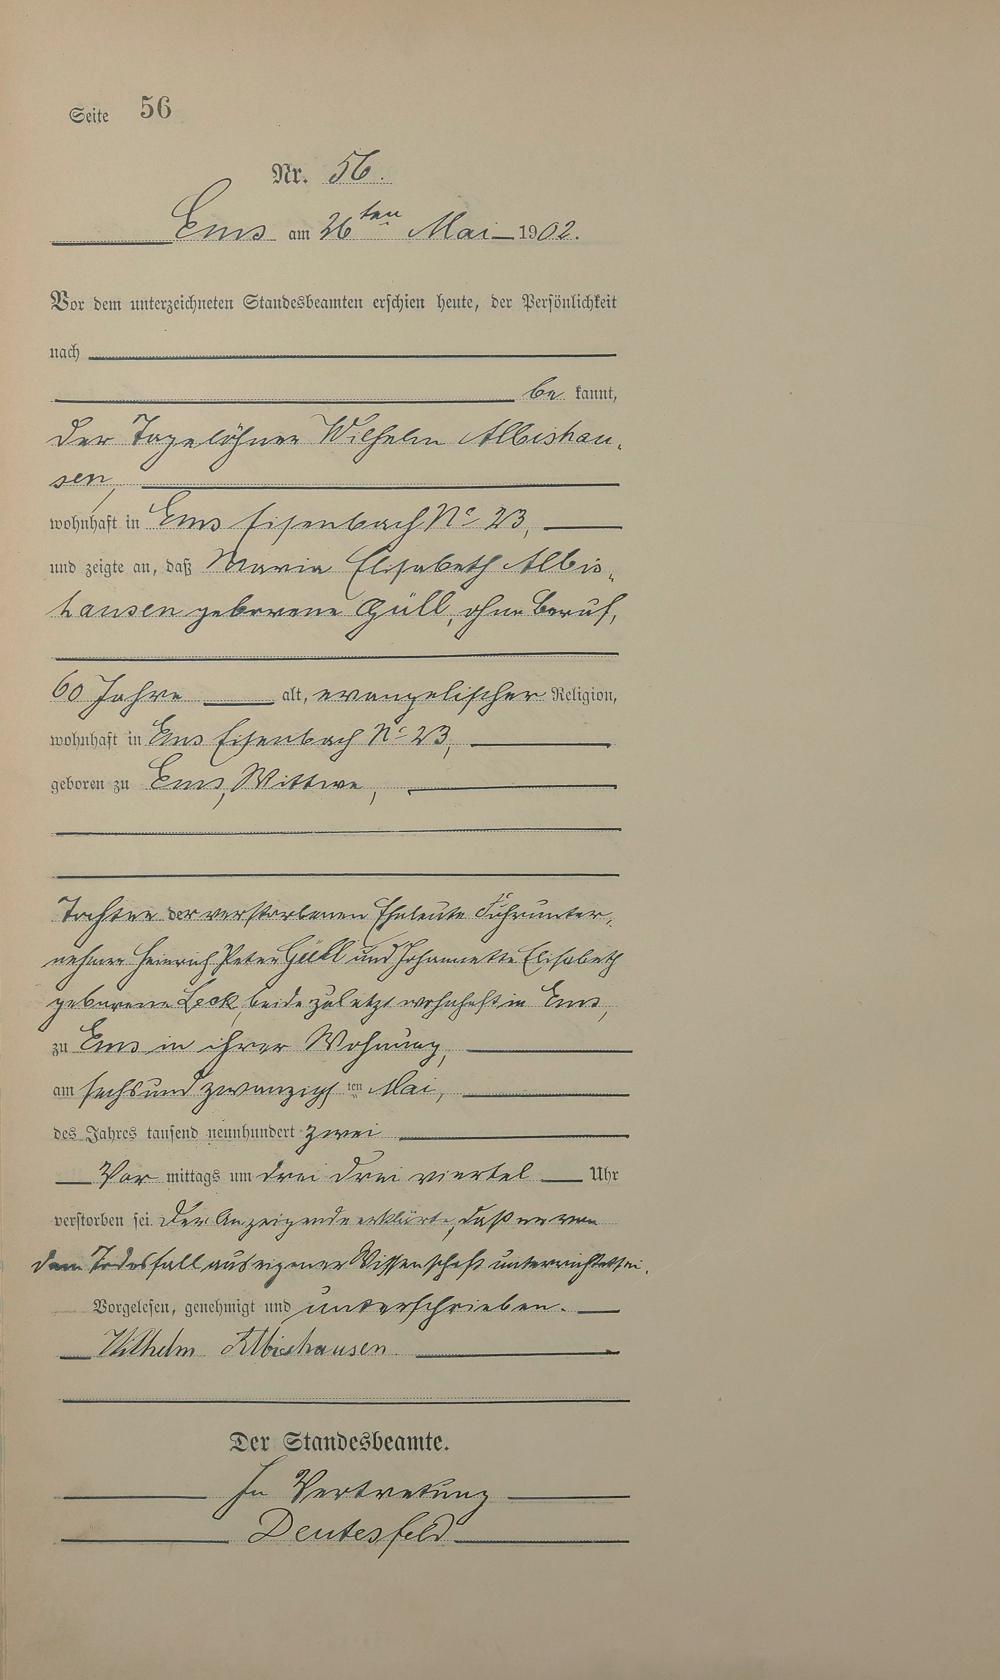 Seite 56
Nr. 56.
Ems am 26ten Mai 1902.
Vor dem unterzeichneten Standesbeamten erschien heute, der Persönlichkeit
nach
be kannt,
der Tagelöhner Wilhelm Albishau-
sen,
wohnhaft in Ems Eisenbach No 23,
und zeigte an, daß Maria Elisabeth Albis-
hausen geborene Güll, ohne Beruf,
60 Jahre alt, evangelischer Religion,
wohnhaft in Ems Eisenbach No 23,
geboren zu Ems, Wittwe,
Tochter der verstorbenen Eheleute Fuhrunter-
nehmer Heinrich Peter Güll und Johannette Elisabeth
geborene Leck, beide zuletzt wohnhaft in Ems,
zu Ems in ihrer Wohnung,
am sechsundzwanzigsten Mai,
des Jahres tausend neunhundert zwei
Vor mittags um drei drei viertel Uhr
verstorben sei. Der Anzeigende erklärte, daß er von
dem Todesfall aus eigener Wissenschaft unterrichtet sei.
Vorgelesen, genehmigt und unterschrieben.
Wilhelm Albishausen
Der Standesbeamte.
In Vertretung
Deutesfeld